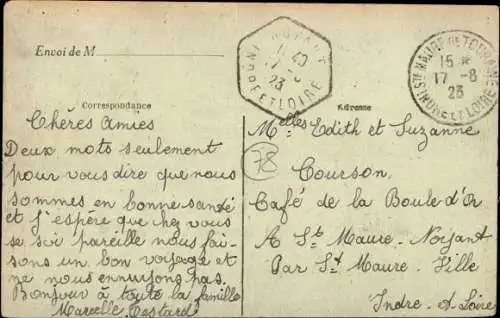 Envoi de M
Correspondance
Chères amies
Deux mots seulement
pour vous dire que nous
sommes en bonne santé
et j'espère que chez vous
se soi pareille nous fai-
sons un bon voyage et
ne nous ennuyons pas.
Bonjour à toute la famille
Marcelle Testard
NOYANT
INDRE ET LOIRE
17 - 8
23
STE MAURE DE TOURAINE
15 *
17 - 8
23
INDRE ET LOIRE
Adresse
Melles Edith et Suzanne
78
Courson
Café de la Boule d'Or
A Ste Maure - Noyant
Par St Maure - Ville
Indre - et - Loire